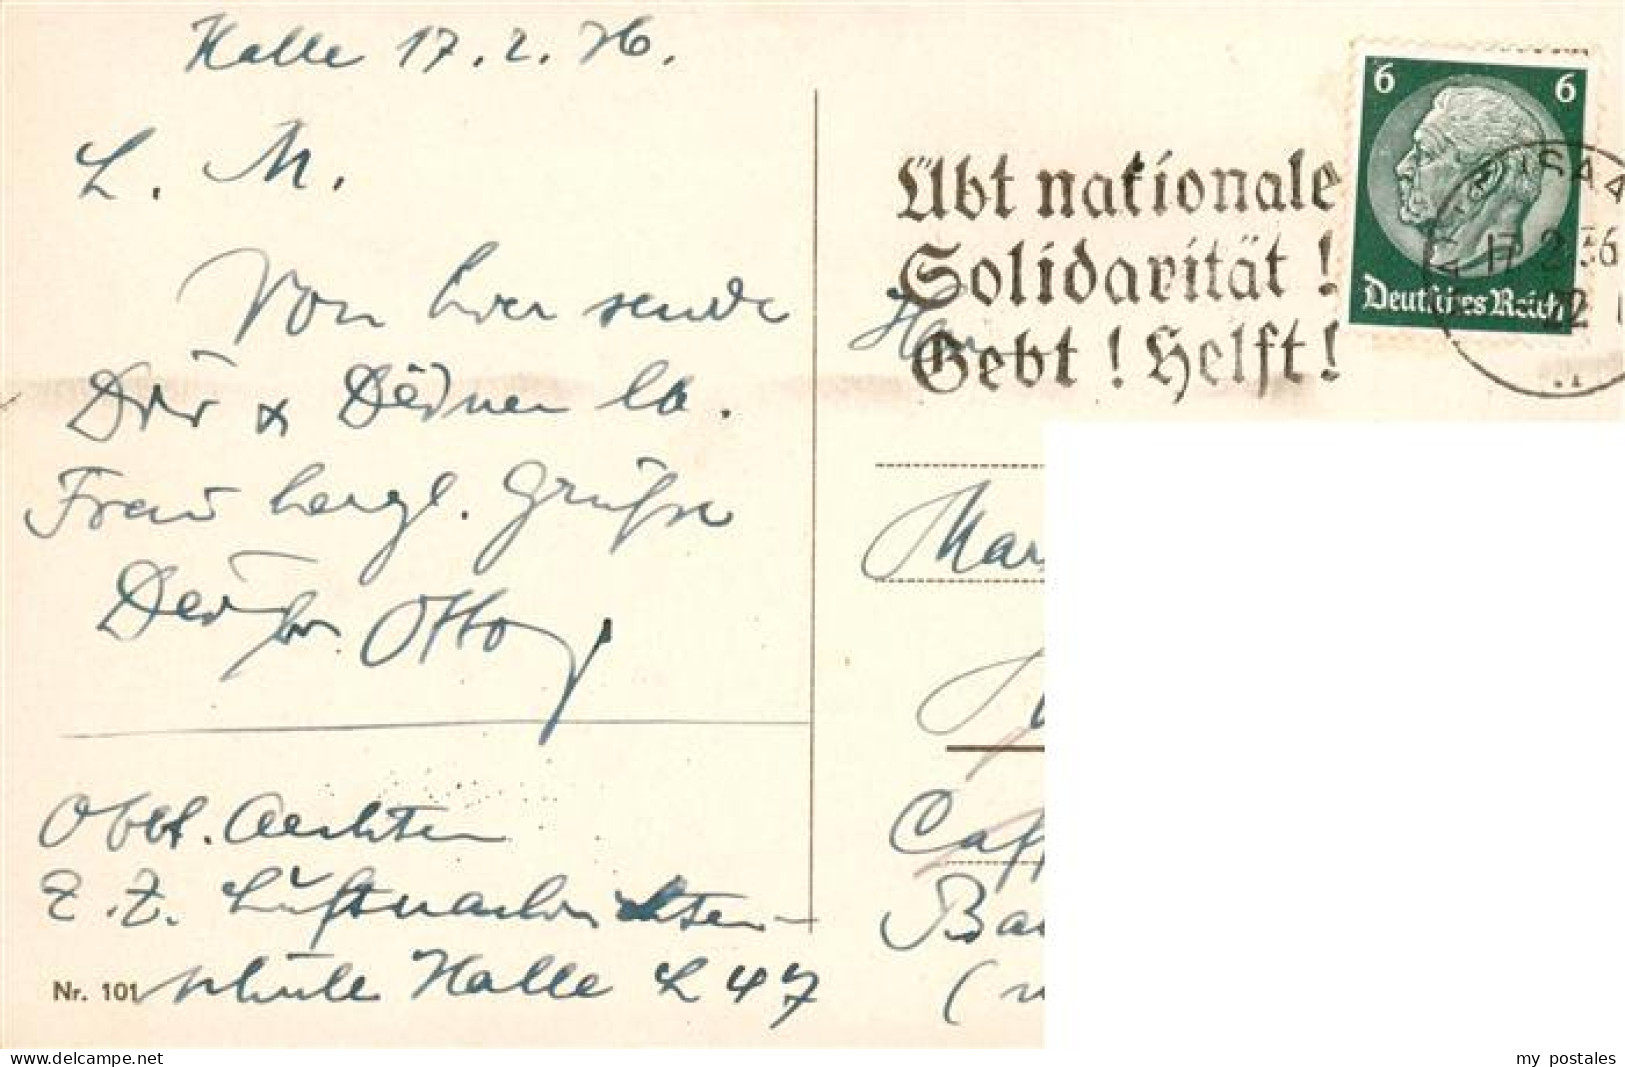 Halle 17.2.36.
L. M.
Von hier sende
Dir & Deiner lb.
Frau herzl. Grüße
Dein Otto
Oblt.
z. Zt. Luftnachrichten-
schule Halle L 47
Nr. 101
Übt nationale
Solidarität!
Gebt! Helft!
6 6
Deutsches Reich
17.2.36
22
Herrn
Mar
Caff
Ba
my postales
delcampe.net